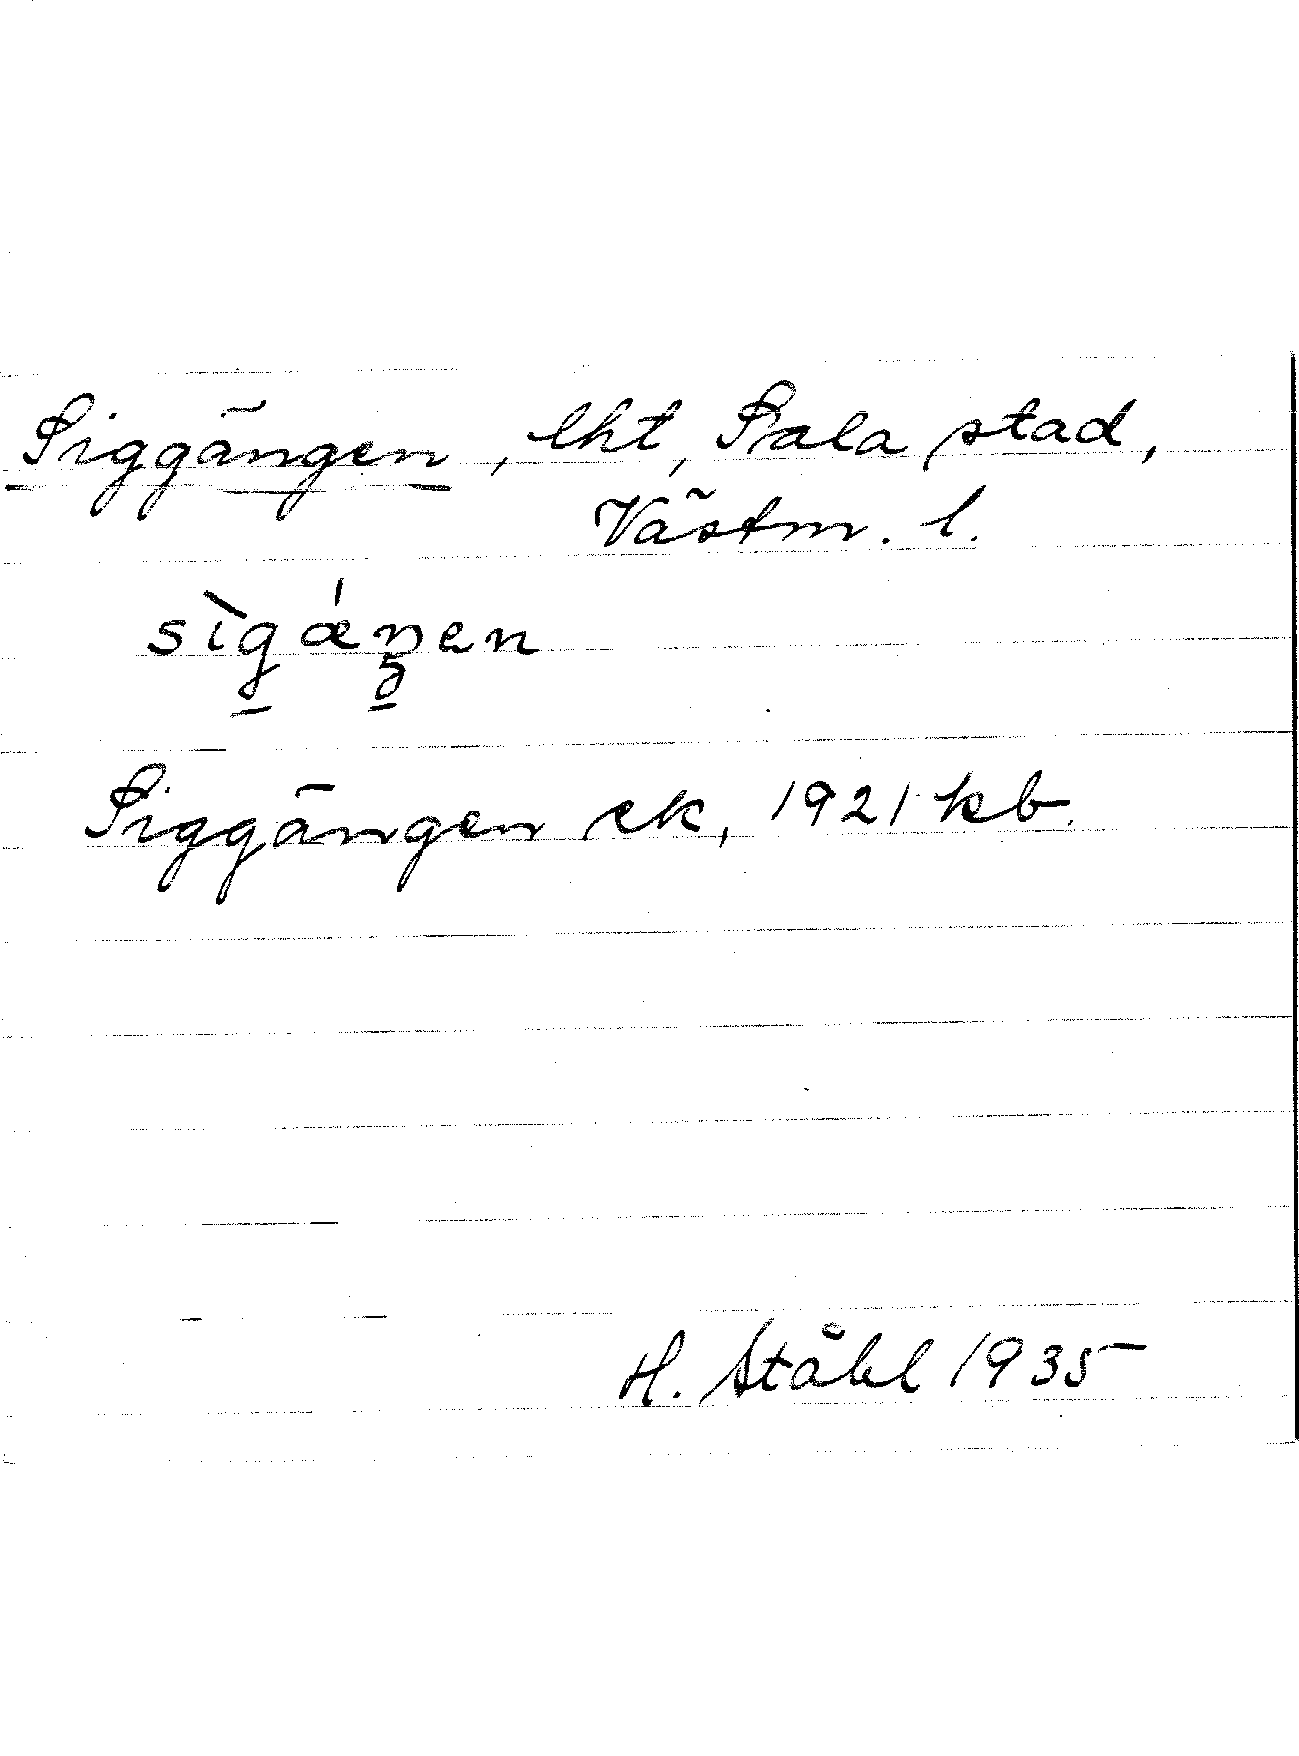 Siggängen, lht, Sala stad,
Västm. l.
sìgǽŋen
Siggängen ek, 1921 kb.
H. Ståhl 1935